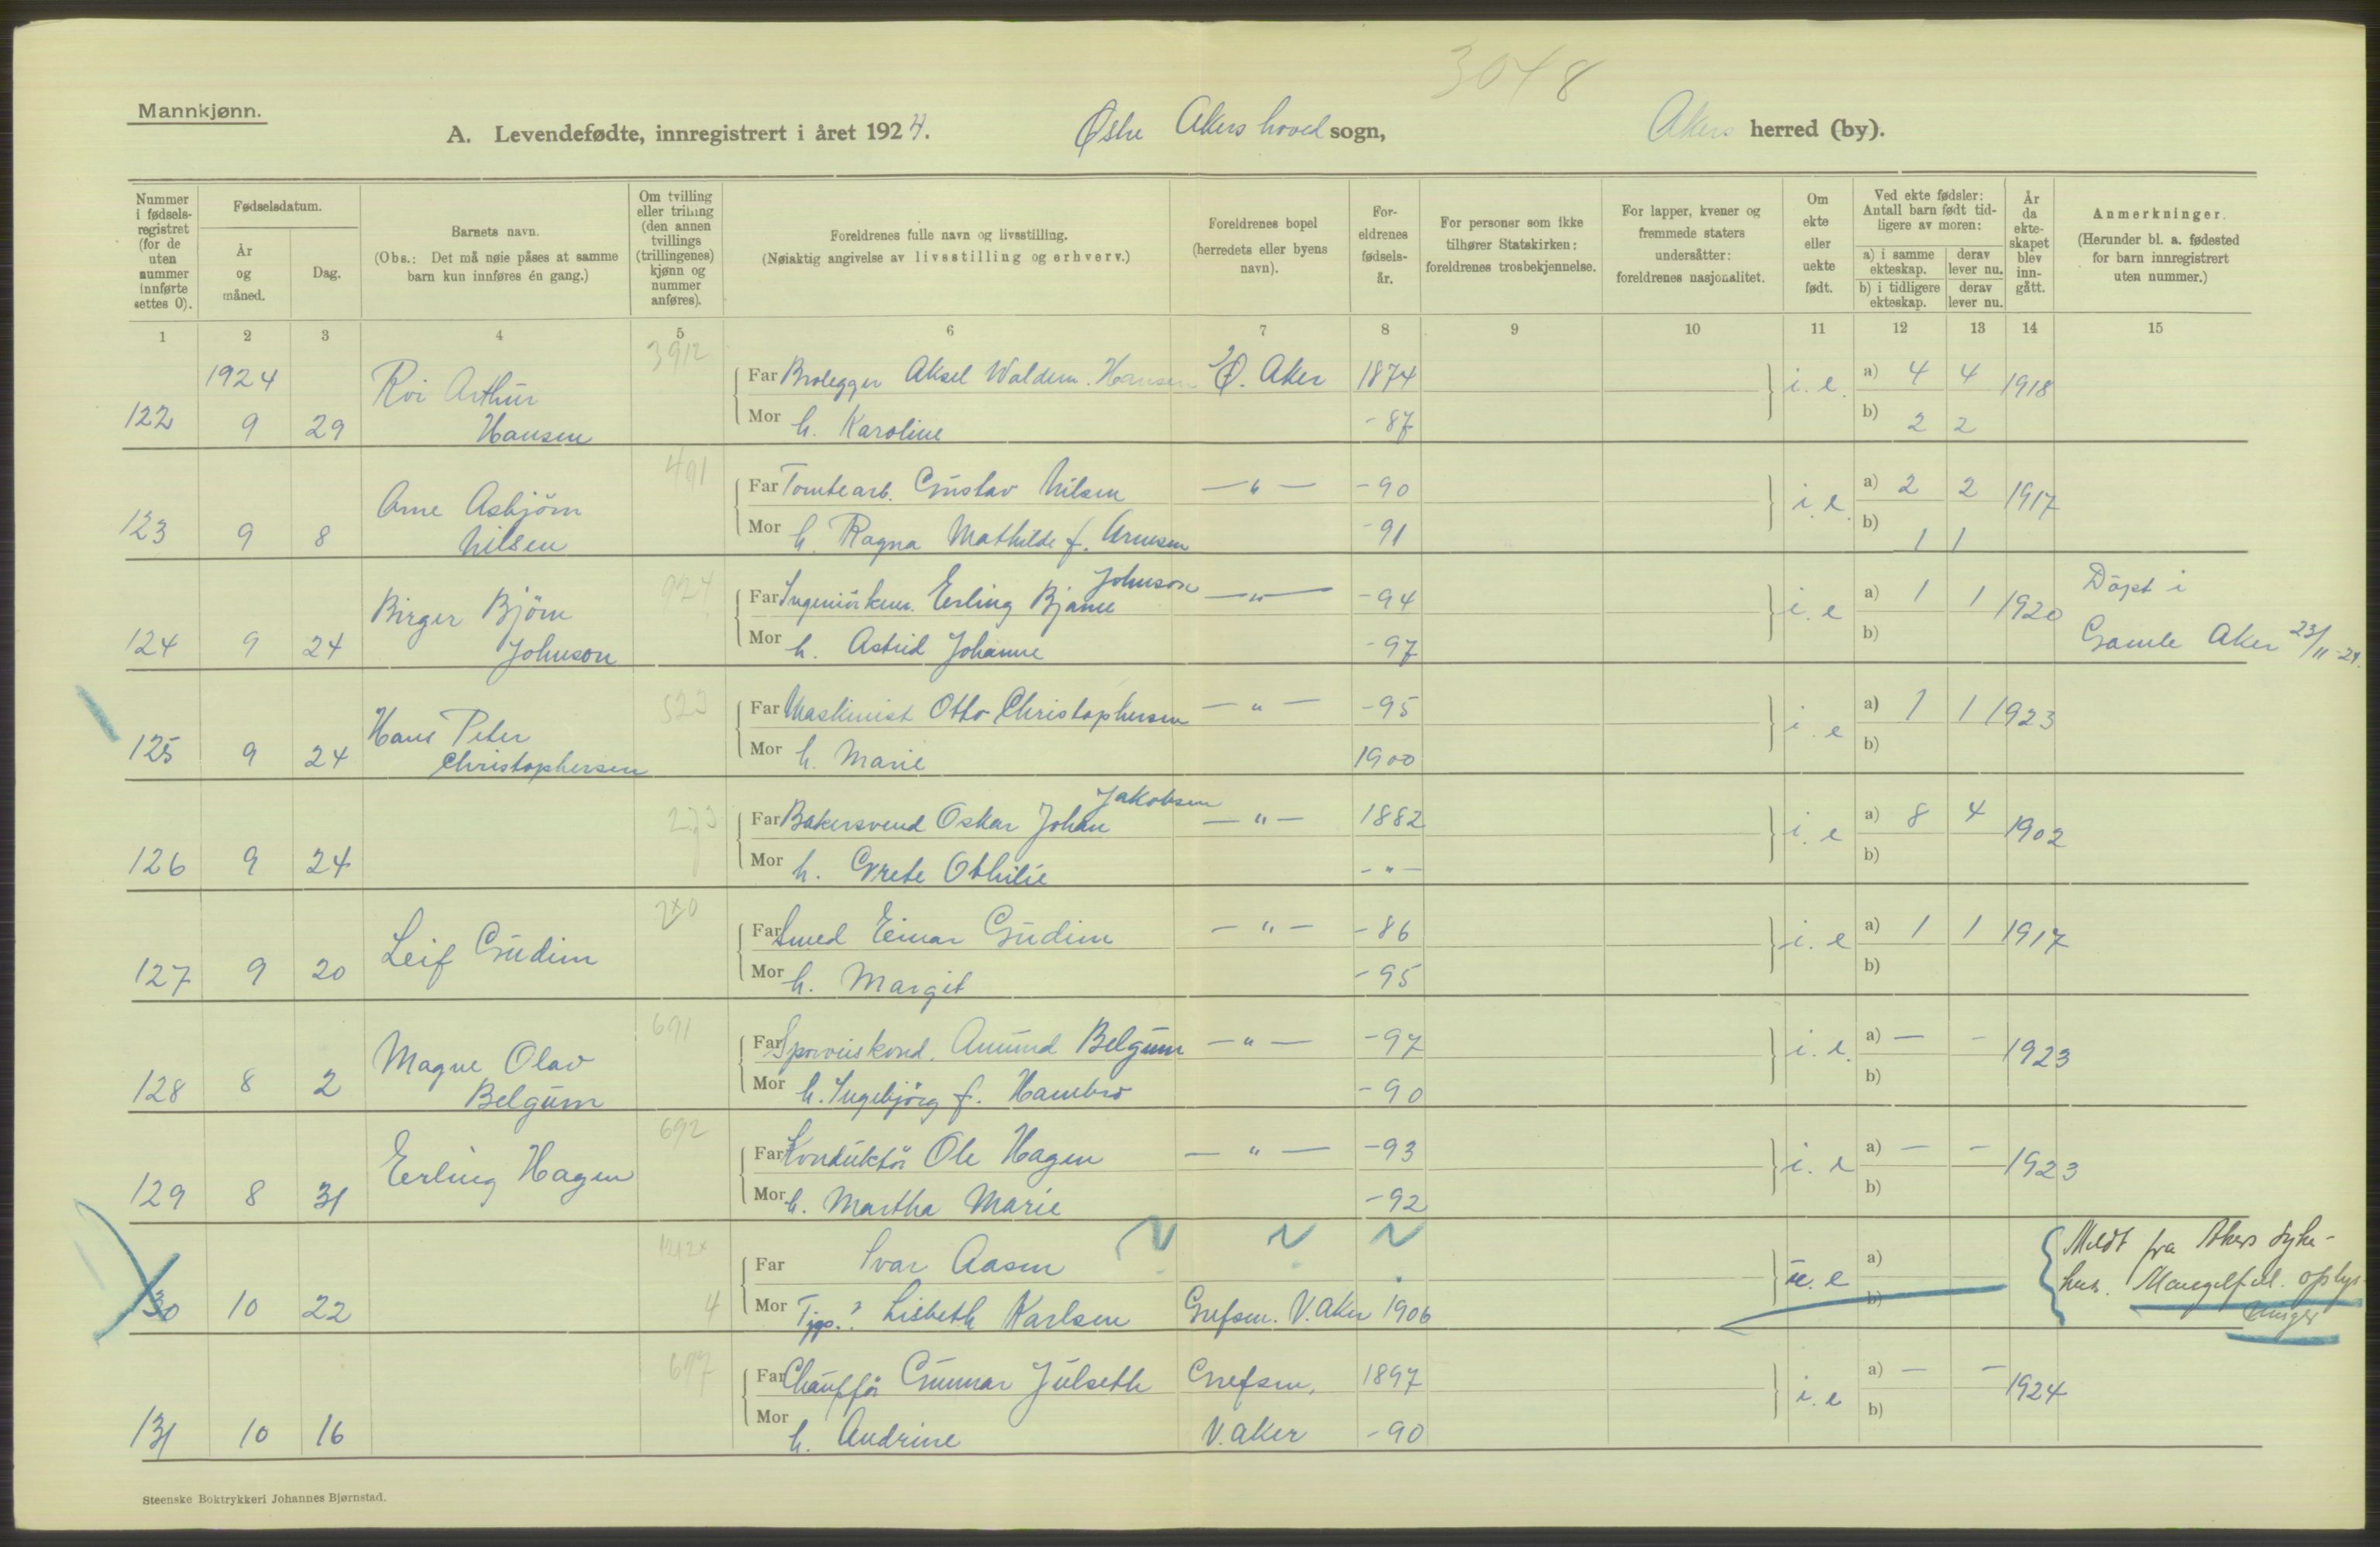 3048
Mannkjønn.
A. Levendefødte, innregistrert i året 1924. Østre Akers hoved sogn, Akers herred (by).
Nummer i fødselsregistret (for de uten nummer innførte settes 0).
Fødselsdatum.
År og måned.
Dag.
Barnets navn.
(Obs.: Det må nøie påses at samme barn kun innføres én gang.)
Om tvilling eller trilling (den annen tvillings (trillingenes) kjønn og nummer anføres).
Foreldrenes fulle navn og livsstilling.
(Nøiaktig angivelse av livsstilling og erhverv.)
Foreldrenes bopel (herredets eller byens navn).
Foreldrenes fødselsår.
For personer som ikke tilhører Statskirken: foreldrenes trosbekjennelse.
For lapper, kvener og fremmede staters undersåtter: foreldrenes nasjonalitet.
Om ekte eller uekte født.
Ved ekte fødsler: Antall barn født tidligere av moren:
a) i samme ekteskap. derav lever nu.
b) i tidligere ekteskap. derav lever nu.
År da ekteskapet blev inngått.
Anmerkninger.
(Herunder bl. a. fødested for barn innregistrert uten nummer.)
1 2 3 4 5 6 7 8 9 10 11 12 13 14 15
1924 3912
Roi Arthur Far Brolegger Aksel Waldem. Hansen Ø. Aker 1874 i. e. a) 4 4 1918
122 9 29 Hansen Mor h. Karoline -87 b) 2 2
491
Arne Asbjörn Far Tomtearb. Gustav Nilsen — " — -90 i. e. a) 2 2 1917
123 9 8 Nilsen Mor h. Ragna Mathilde f. Arnesen -91 b) 1 1
924 Johnson Döpt i
Birger Björn Far Ingeniörkem. Erling Bjarne — " — -94 i. e a) 1 1 1920
124 9 24 Johnson Mor h. Astrid Johanne -97 b) Gamle Aker 23/11-24.
523
Hans Peter Far Maskinist Otto Christophersen — " — -95 i. e a) 1 1 1923
125 9 24 Christophersen Mor h. Marie 1900 b)
273 Jakobsen
Far Bakersvend Oskar Johan — " — 1882 i. e a) 8 4 1902
126 9 24 Mor h. Grete Othilie - " - b)
Far Smed Einar Gudim — " — -86 i. e a) 1 1 1917
127 9 20 Leif Gudim Mor h. Margit -95 b)
691
Magne Olav Far Sporveiskond. Amund Belgum — " — -97 i. e. a) — - 1923
128 8 2 Belgum Mor h. Ingebjörg f. Hambro -90 b)
692
Erling Hagen Far Konduktör Ole Hagen — " — -93 i. e a) — - 1923
129 8 31 Mor h. Martha Marie -92 b)
Far Ivar Aasen u. e a) Meldt fra Akers Syke-
130 10 22 4 Mor Tjgp.? Lisbeth Karlsen Grefsen. V. Aker 1906 b) hus. Mangelfull. oplys-
ninger
697
Far Chaufför Gunnar Julseth Grefsen, 1897 i. e a) — - 1924
131 10 16 Mor h. Andrine V. Aker -90 b)
Steenske Boktrykkeri Johannes Bjørnstad.